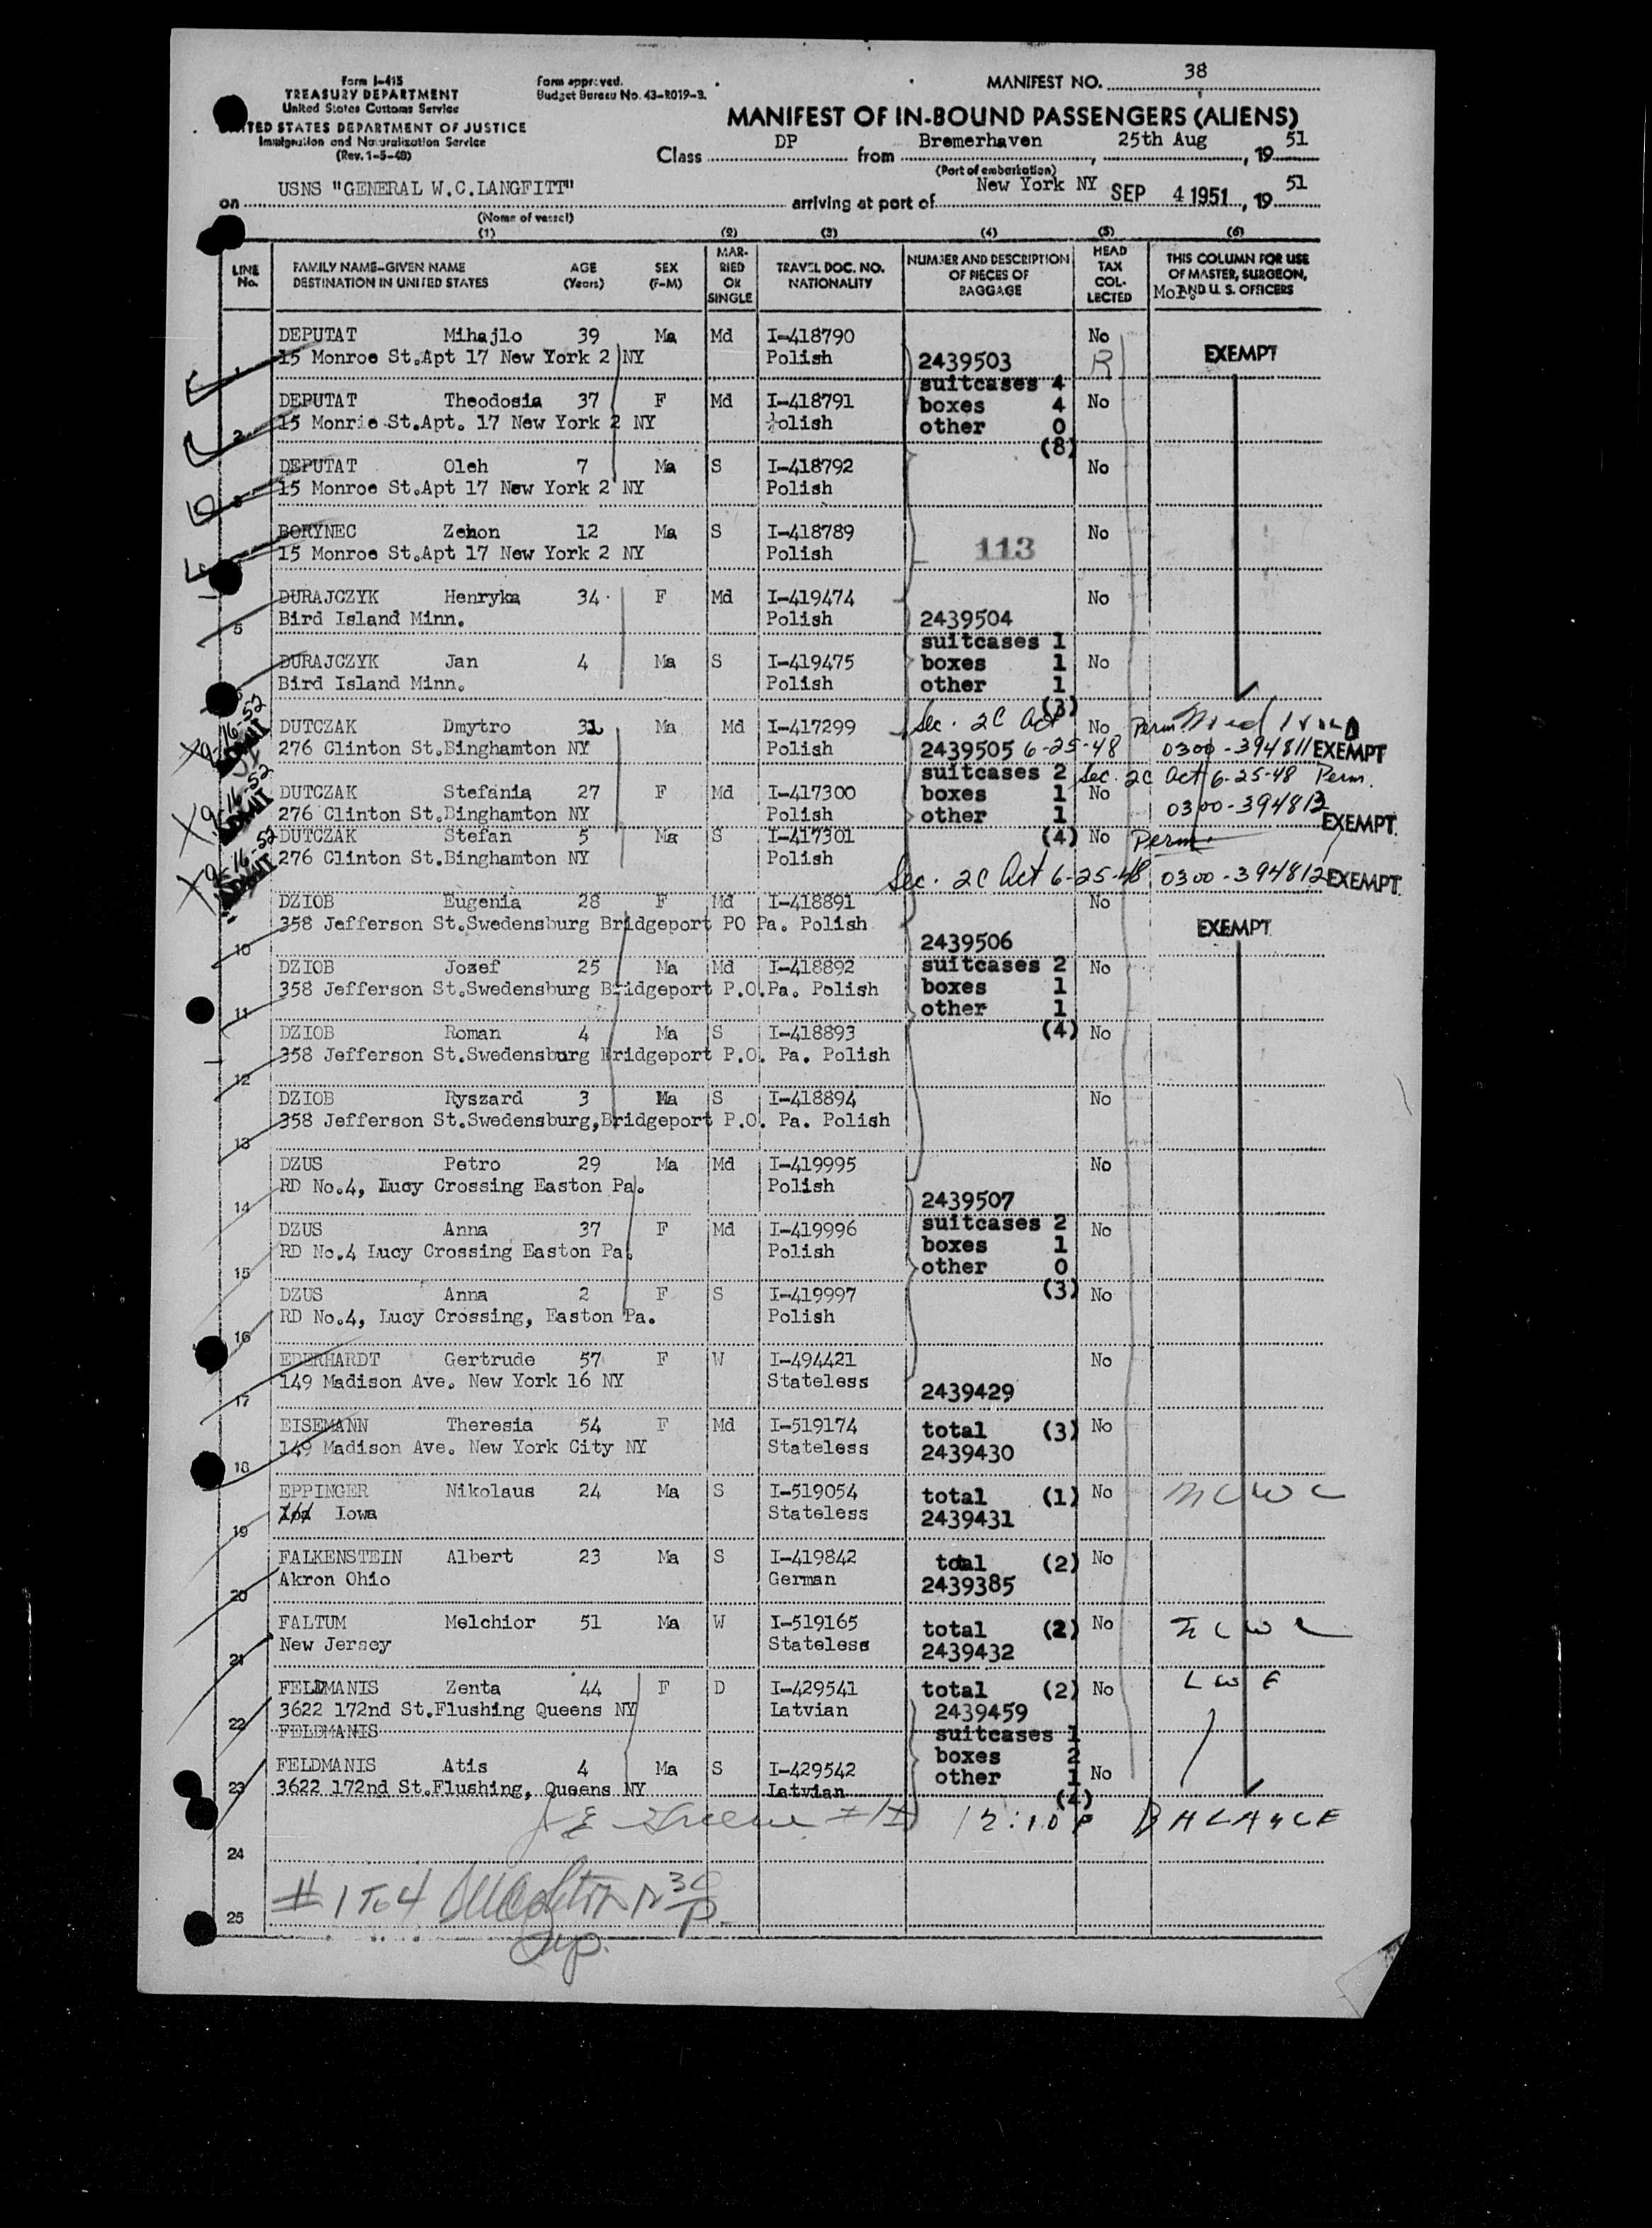 Form I-415
TREASURY DEPARTMENT
United States Customs Service
UNITED STATES DEPARTMENT OF JUSTICE
Immigration and Naturalization Service
(Rev. 1-5-48)
Form approved.
Budget Bureau No. 43-R019-3.
MANIFEST NO. 38
MANIFEST OF IN-BOUND PASSENGERS (ALIENS)
Class DP from Bremerhaven, 25th Aug, 19 51
(Port of embarkation)
on USNS "GENERAL W.C.LANGFITT" arriving at port of New York NY SEP 4 1951, 19 51
(Name of vessel)
(1) (2) (3) (4) (5) (6)
LINE No. FAMILY NAME-GIVEN NAME DESTINATION IN UNITED STATES AGE (Years) SEX (F-M) MARRIED OR SINGLE TRAVEL DOC. NO. NATIONALITY NUMBER AND DESCRIPTION OF PIECES OF BAGGAGE HEAD TAX COLLECTED THIS COLUMN FOR USE OF MASTER, SURGEON, AND U. S. OFFICERS
DEPUTAT Mihajlo 39 Ma Md I-418790 No
15 Monroe St.Apt 17 New York 2 NY Polish 2439503 R EXEMPT
suitcases 4
DEPUTAT Theodosia 37 F Md I-418791 boxes 4 No
2 15 Monrie St.Apt. 17 New York 2 NY Polish other 0
(8)
DEPUTAT Oleh 7 Ma S I-418792 No
15 Monroe St.Apt 17 New York 2 NY Polish
BORYNEC Zenon 12 Ma S I-418789 No
15 Monroe St.Apt 17 New York 2 NY Polish 113
DURAJCZYK Henryka 34 F Md I-419474 No
5 Bird Island Minn. Polish 2439504
suitcases 1
DURAJCZYK Jan 4 Ma S I-419475 boxes 1 No
Bird Island Minn. Polish other 1
(3)
DUTCZAK Dmytro 32 Ma Md I-417299 Sec. 2C Act No Perm.
9-16-52 ADMIT 276 Clinton St.Binghamton NY Polish 2439505 6-25-48 0300-394811 EXEMPT
suitcases 2 Sec. 2C Act 6-25-48 Perm.
DUTCZAK Stefania 27 F Md I-417300 boxes 1 No
9-16-52 ADMIT 276 Clinton St.Binghamton NY Polish other 1 0300-394813 EXEMPT
DUTCZAK Stefan 5 Ma S I-417301 (4) No Perm.
9-16-52 ADMIT 276 Clinton St.Binghamton NY Polish
Sec. 2C Act 6-25-48 0300-394812 EXEMPT
DZIOB Eugenia 28 F Md I-418891 No
10 358 Jefferson St.Swedensburg Bridgeport PO Pa. Polish EXEMPT
2439506
DZIOB Jozef 25 Ma Md I-418892 suitcases 2 No
11 358 Jefferson St.Swedensburg Bridgeport P.O.Pa. Polish boxes 1
other 1
DZIOB Roman 4 Ma S I-418893 (4) No
12 358 Jefferson St.Swedensburg Bridgeport P.O. Pa. Polish
DZIOB Ryszard 3 Ma S I-418894 No
13 358 Jefferson St.Swedensburg,Bridgeport P.O. Pa. Polish
DZUS Petro 29 Ma Md I-419995 No
14 RD No.4, Lucy Crossing Easton Pa. Polish 2439507
suitcases 2
DZUS Anna 37 F Md I-419996 No
15 RD No.4 Lucy Crossing Easton Pa. Polish boxes 1
other 0
DZUS Anna 2 F S I-419997 (3) No
16 RD No.4, Lucy Crossing, Easton Pa. Polish
EBERHARDT Gertrude 57 F W I-494421 No
17 149 Madison Ave. New York 16 NY Stateless 2439429
EISEMANN Theresia 54 F Md I-519174 total (3) No
18 149 Madison Ave. New York City NY Stateless 2439430
EPPINGER Nikolaus 24 Ma S I-519054 total (1) No NCWC
19 Iowa Stateless 2439431
FALKENSTEIN Albert 23 Ma S I-419842 total (2) No
20 Akron Ohio German 2439385
FALTUM Melchior 51 Ma W I-519165 total (2) No NCWC
21 New Jersey Stateless 2439432
FELDMANIS Zenta 44 F D I-429541 total (2) No LWF
22 3622 172nd St.Flushing Queens NY Latvian 2439459
FELDMANIS suitcases 1
boxes 2
FELDMANIS Atis 4 Ma S I-429542 other 1 No
23 3622 172nd St.Flushing, Queens NY Latvian
(4)
12:10 P BALANCE
24
# 1 To 4
25